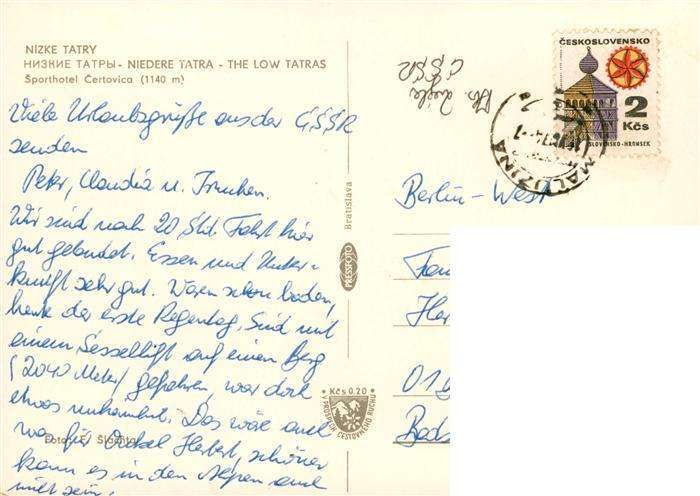 NÍZKE TATRY
НИЗКИЕ ТАТРЫ - NIEDERE TATRA - THE LOW TATRAS
Športhotel Čertovica (1140 m)
Viele Urlaubsgrüße aus der ČSSR
senden
Peter, Claudia u.
Wir sind nach 20 Std. Fahrt hier
gut gelandet. Essen und Unter-
kunft sehr gut. Waren schon baden,
heute der erste Regentag. Sind mit
einem Sessellift auf einen Berg
(2040 Meter) gefahren, war doch
etwas unheimlich. Das wäre auch
was für Onkel Herbert, schöner
kann es in den Alpen auch
nicht sein.
Foto: E. Šlachta
Bratislava
PRESSFOTO
Kčs 0.20
V PROSPECH CESTOVNÉHO RUCHU
ČSSR
ČESKOSLOVENSKO
2
Kčs
SLOVENSKO-HRONSEK
MALUŽINÁ
Berlin-West